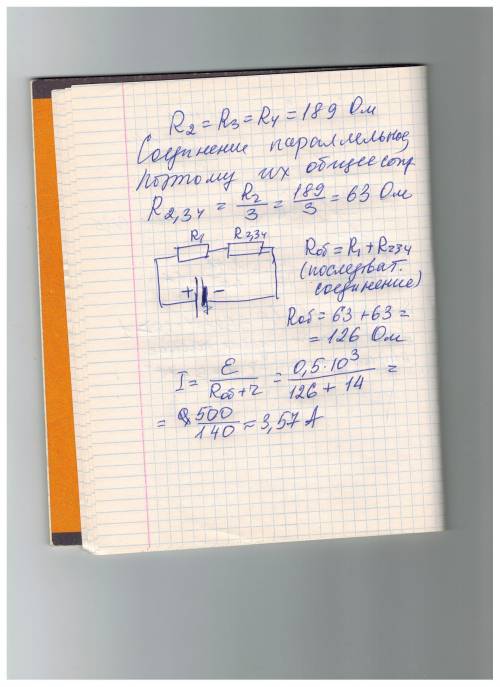 R2 = R3 = R4 = 189 Ом
Соединение параллельное,
поэтому их общее сопр.
R2,34 = R2/3 = 189/3 = 63 Ом
R1 R2,34
+ -
Rоб = R1 + R234
(последоват.
соединение)
Rоб = 63 + 63 =
= 126 Ом
I = ε/(Rоб + r) = 0,5·10³/(126 + 14) =
= 500/140 ≈ 3,57 А